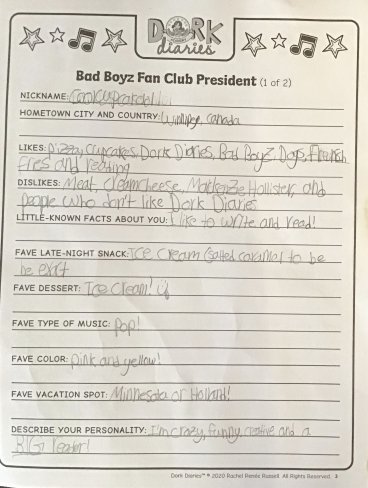 DORK
diaries
Bad Boyz Fan Club President (1 of 2)
NICKNAME: coolcupcake!!
HOMETOWN CITY AND COUNTRY: Winnipeg, Canada
LIKES: Pizza, Cupcakes, Dork Diaries, Bad Boyz, Dogs, French
fries and reading
DISLIKES: Meat, Creamcheese, Mackenzie Hollister, and
people who don't like Dork Diaries
LITTLE-KNOWN FACTS ABOUT YOU: I like to write and read!
FAVE LATE-NIGHT SNACK: Ice Cream (salted caramel to be
be exact
FAVE DESSERT: Ice Cream!
FAVE TYPE OF MUSIC: Pop!
FAVE COLOR: pink and yellow!
FAVE VACATION SPOT: Minnesota or Holland!
DESCRIBE YOUR PERSONALITY: I'm crazy, funny, creative and a
BIG reader!
Dork Diaries™ © 2020 Rachel Renée Russell. All Rights Reserved. 3